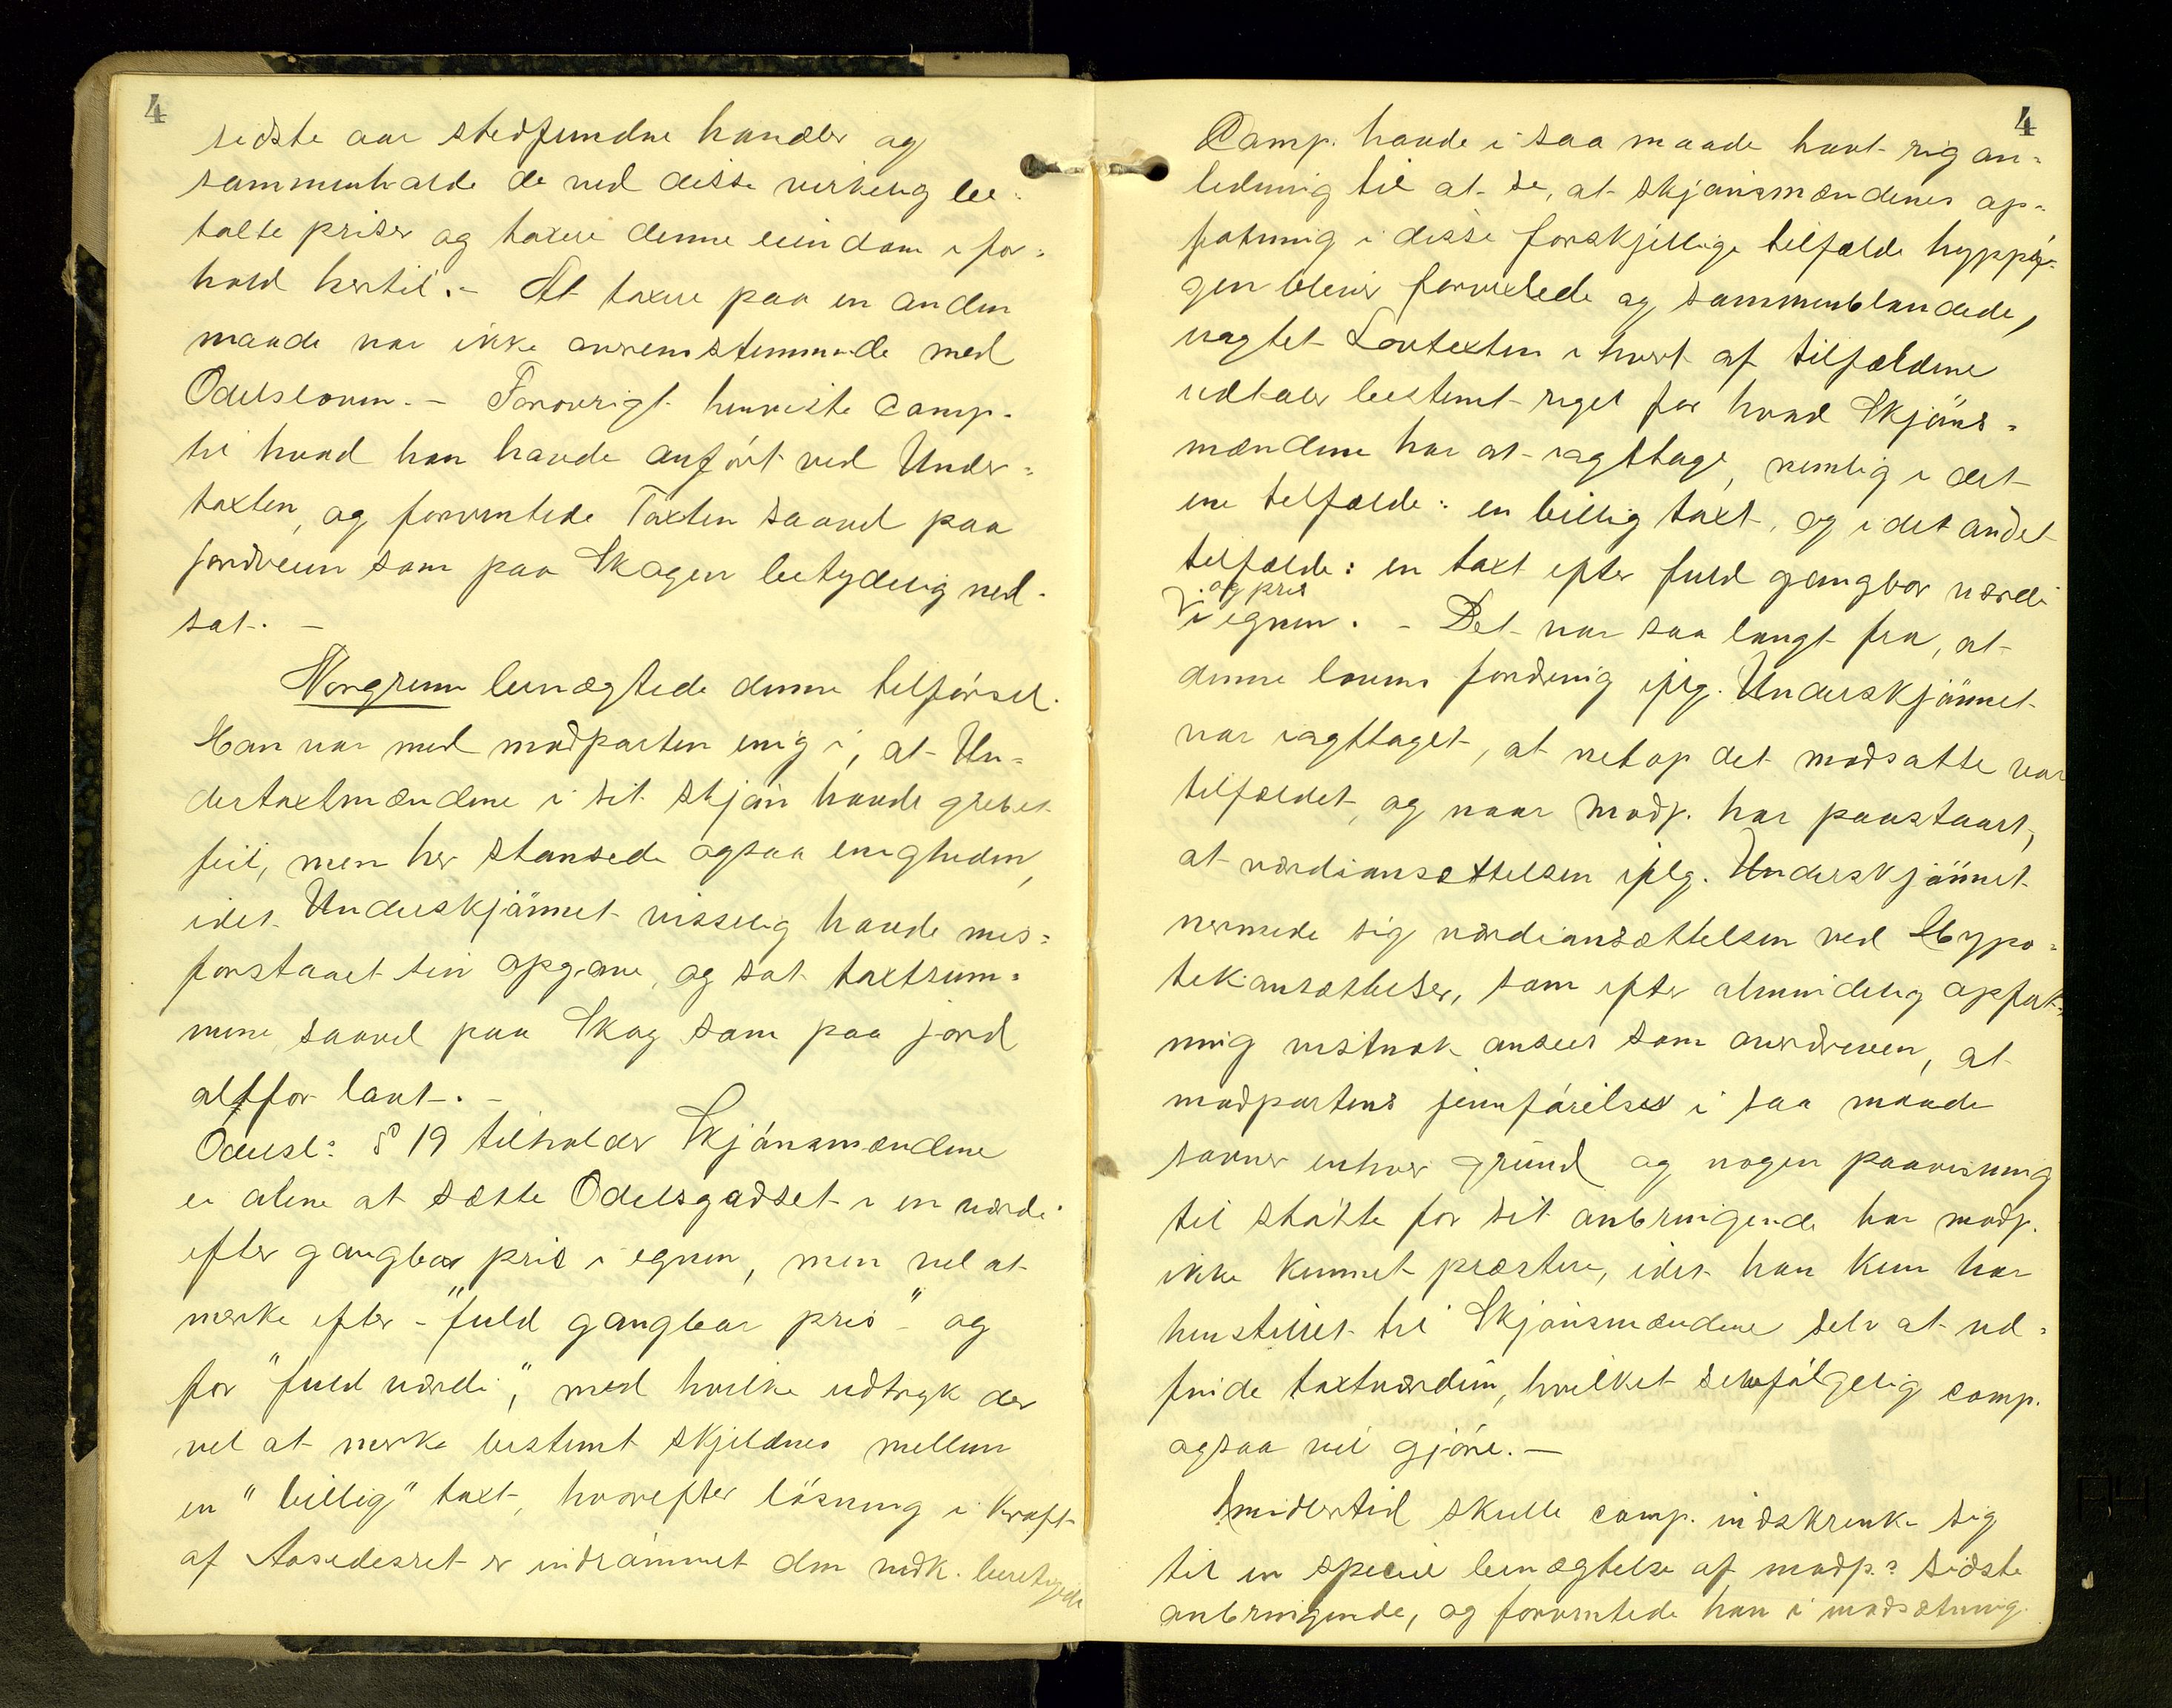 4
sidste aar stedfundne handler og
sammenholde de ved disse virkelig be-
talte priser og taxere denne eiendom i for-
hold hertil. - At taxere paa en anden
maade var ikke overensstemmende med
Odelsloven. - Forøvrigt henviste Comp.
til hvad han havde anført ved Under-
taxten, og formentede Taxten saavel paa
jordveien som paa Skogen betydelig ned-
sat. -
Norgrenn benægtede denne tilførsel.
Han var med modparten enig i, at Un-
dertaxtmændene i sit skjøn havde grebet
feil, men her stansede ogsaa enigheden,
idet Underskjønnet visselig havde mis-
forstaaet sin opgave, og sat taxtsum-
mene saavel paa Skog som paa jord
altfor lavt. -
Odelsl: § 19 tilholder Skjønsmændene
ei alene at sætte Odelsgodset i en værdi
efter gangbar pris i egnen, men vel at
merke efter - "fuld gangbar pris" - og
for "fuld værdi", med hvilke udtryk der
vel at merke bestemt skjeldnes mellem
en "billig" taxt, hvorefter løsning i Kraft
af Aasædesret er indrømmet den vedk. berettigede
4
Comp. havde i saa maade havt rig an-
ledning til at se, at skjønsmændenes op-
fatning i disse forskjellige tilfælde hyppi-
gen blevis forvexlede og sammenblandede,
uagtet Lovtexten i hvert af tilfældene
udtaler bestemt regel for hvad Skjøns-
mændene har at iagttage, nemlig i det
ene tilfælde: en billig taxt, og i det andet
tilfælde: en taxt efter fuld gangbar værdi
og pris
i egnen. - Det var saa langt fra, at
denne lovens fordring iflg. Underskjønnet
var iagttaget, at netop det modsatte var
tilfældet, og naar Modp. har paastaaet,
at værdiansættelsen iflg. Underskjønnet
nermede sig værdiansættelsen ved Hypo-
tekansættelser, som efter almindelig opfat-
ning vistnok ansees som overdreven, at
modpartens jevnførelser i saa maade
savner enhver grund og nogen paavisning
til støtte for sit anbringende har modp.
ikke kunnet præstere, idet han kun har
henstillet til Skjønsmændene selv at ud-
finde taxtværdien, hvilket selvfølgelig comp.
ogsaa vil gjøre. -
Imidlertid skulle comp. indskrenke sig
til en speciel benægtelse af modp.s sidste
anbringende, og formentede han i modsætning